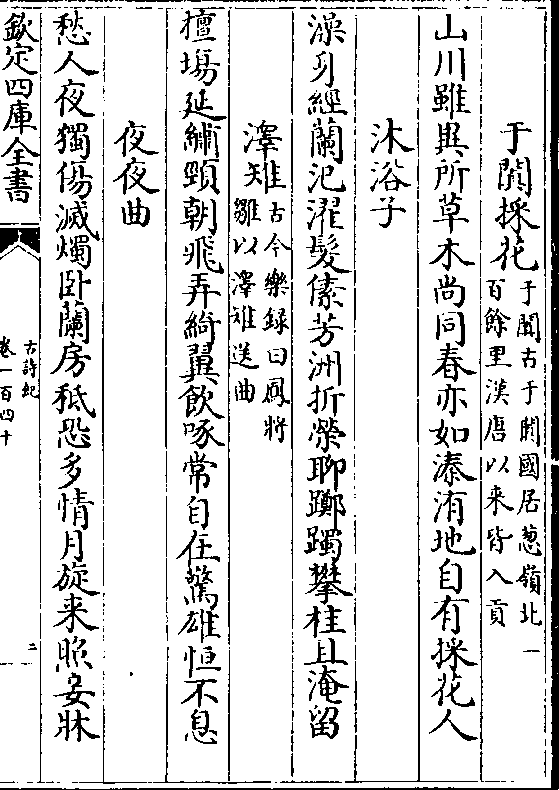 于闐採花于闐古于闐國居葱嶺北一百餘里漢唐以来皆入貢
山川雖異所草木尚同春亦如溱洧地自有採花人
沐浴子
澡身經蘭汜濯髮傃芳洲折榮聊躑躅攀桂且淹留
澤雉古今樂録曰鳳將雛以澤雉送曲
擅塲延繡頸朝飛弄綺翼飲啄常自在驚雄恒不息
夜夜曲
愁人夜獨傷滅燭卧蘭房秪恐多情月旋来照妾牀
欽定四庫全書
古詩紀
卷一百四十
二